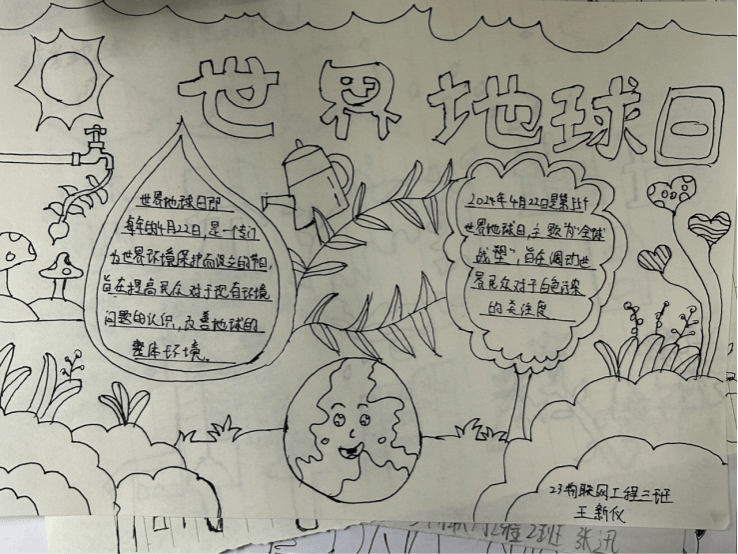 世界地球日
世界地球日即
每年的4月22日,是一个专门
为世界环境保护而设立的节日,
旨在提高民众对于现有环境
问题的认识,改善地球的
整体环境。
2024年4月22日是第55个
世界地球日,主题为"全球
战塑",旨在调动世
界民众对于白色污染
的关注度
23物联网工程三班
王新仪
程2班 张汛